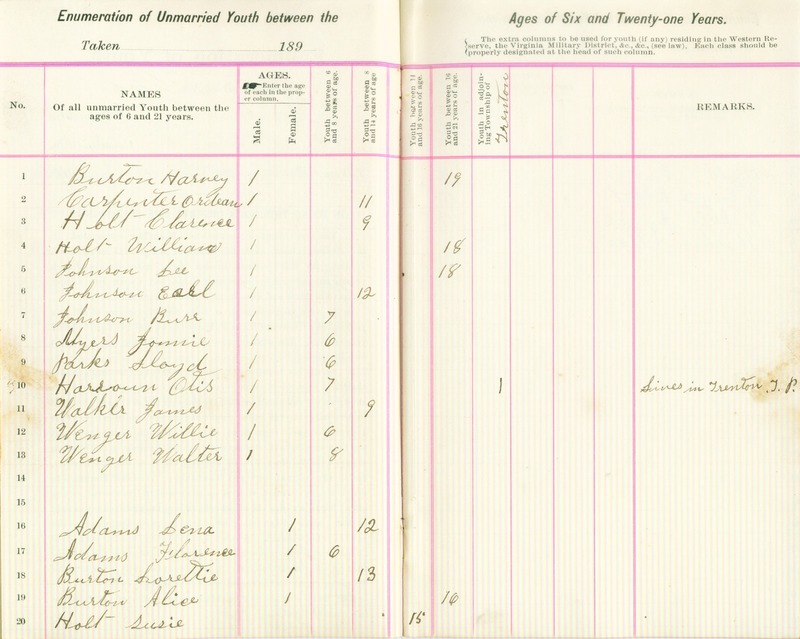 Enumeration of Unmarried Youth between the Ages of Six and Twenty-one Years.
Taken 189
The extra columns to be used for youth (if any) residing in the Western Re-
serve, the Virginia Military District, &c., &c., (see law). Each class should be
properly designated at the head of such column.
No.
NAMES
Of all unmarried Youth between the
ages of 6 and 21 years.
AGES.
Enter the age
of each in the prop-
er column.
Male.
Female.
Youth between 6
and 8 years of age.
Youth between 8
and 14 years of age.
Youth between 14
and 16 years of age.
Youth between 16
and 21 years of age.
Youth in adjoin-
ing Township of
Trenton
REMARKS.
1 Burton Harvey 1 19
2 Carpenter Ordean 1 11
3 Holt Clarence 1 9
4 Holt William 1 18
5 Johnson Lee 1 18
6 Johnson Earl 1 12
7 Johnson Burr 1 7
8 Myers Jonnie 1 6
9 Parks Lloyd 1 6
10 Harroun Otis 1 7 1 Lives in Trenton T. P.
11 Walker James 1 9
12 Wenger Willie 1 6
13 Wenger Walter 1 8
14
15
16 Adams Lena 1 12
17 Adams Florence 1 6
18 Burton Lorettie 1 13
19 Burton Alice 1 16
20 Holt Susie 15